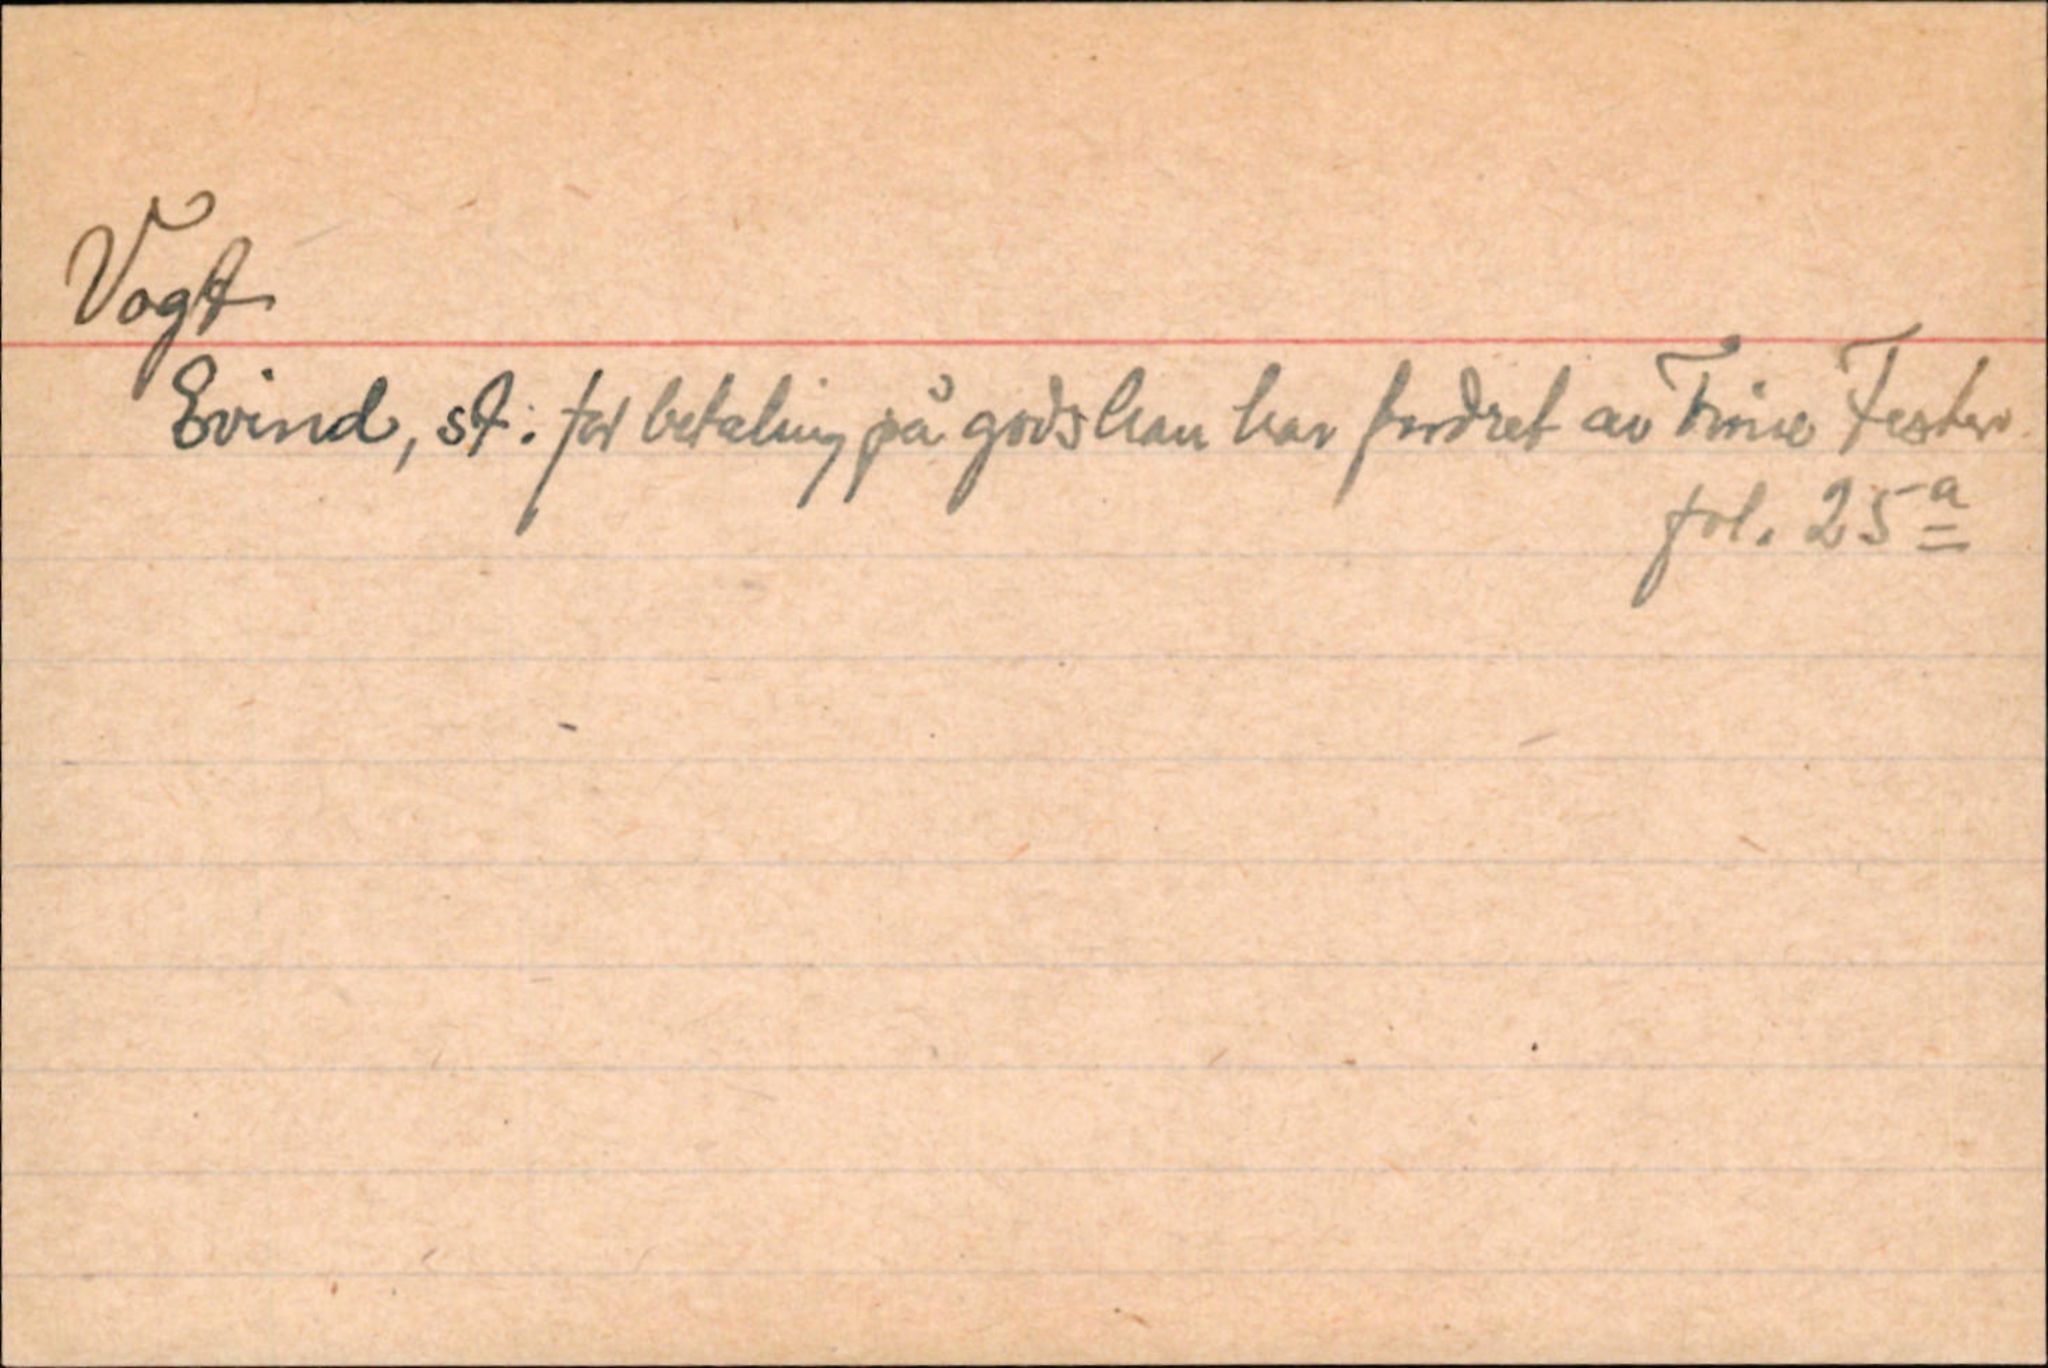 Vogt
Evind, st: får betaling på gods han har fordret av Trine Festers
fol. 25a